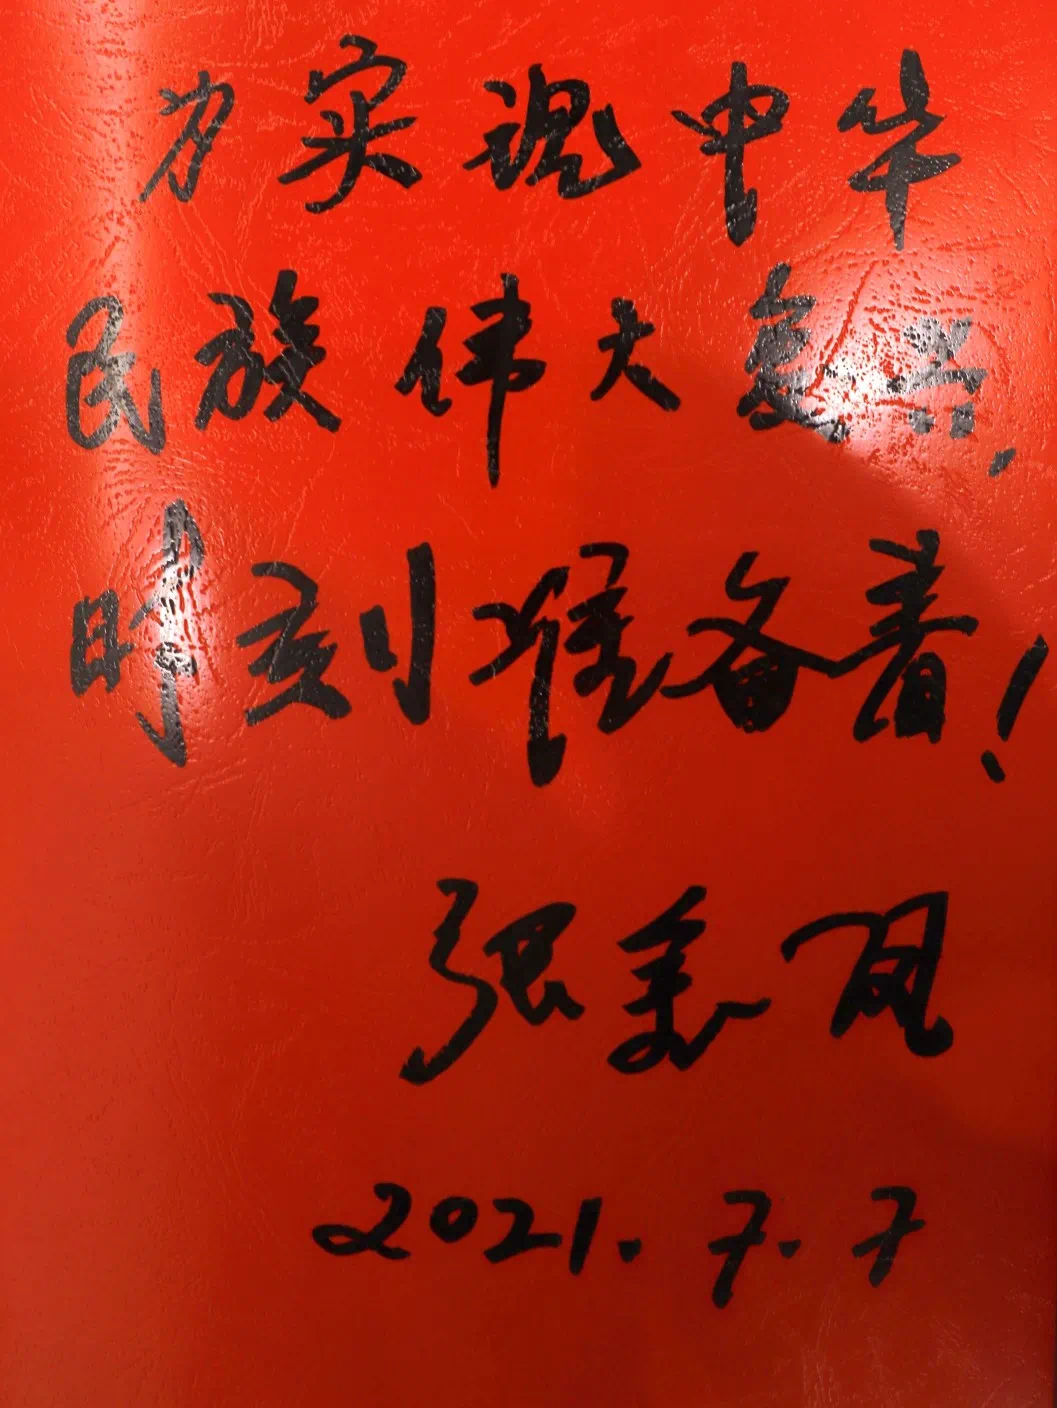 为实现中华
民族伟大复兴，
时刻准备着！
张美凤
2021.7.7